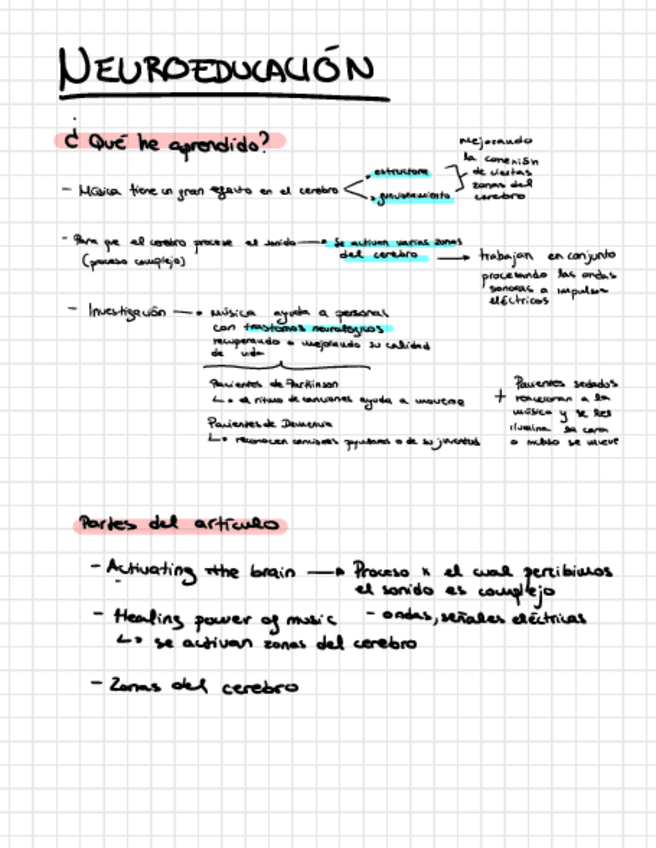 NEUROEDUCACIÓN
¿Qué he aprendido?
- Música tiene un gran efecto en el cerebro
estructura
funcionamiento
mejorando
la conexión
de ciertas
zonas del
cerebro
- Para que el cerebro procese el sonido → se activan varias zonas
(proceso complejo)
del cerebro
→ trabajan en conjunto
procesando las ondas
sonoras a impulsos
eléctricos
- Investigación → música ayuda a personal
con trastornos neurológicos
recuperando o mejorando su calidad
de vida
Pacientes de Parkinson
↳ el ritmo de canciones ayuda a moverse
Pacientes de Demencia
↳ reconocen canciones populares o de su juventud
+ Pacientes sedados
reaccionan a la
música y se les
ilumina la cara
o incluso se mueve
Partes del artículo
- Activating the brain → Proceso x el cual percibimos
el sonido es complejo
- ondas, señales eléctricas
- Healing power of music
↳ se activan zonas del cerebro
- Zonas del cerebro